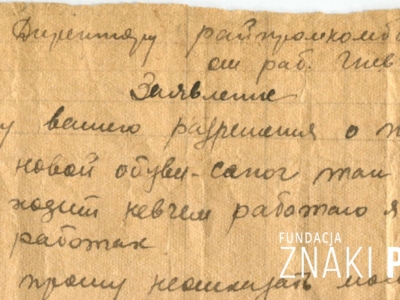 Директору райпромкомб
от раб. Гнев
Заявление
у вашего разрешения о п
новой обуви-сапог так
ходит невчем работаю я
работах.
прошу неотказать мое
FUNDACJA
ZNAKI P